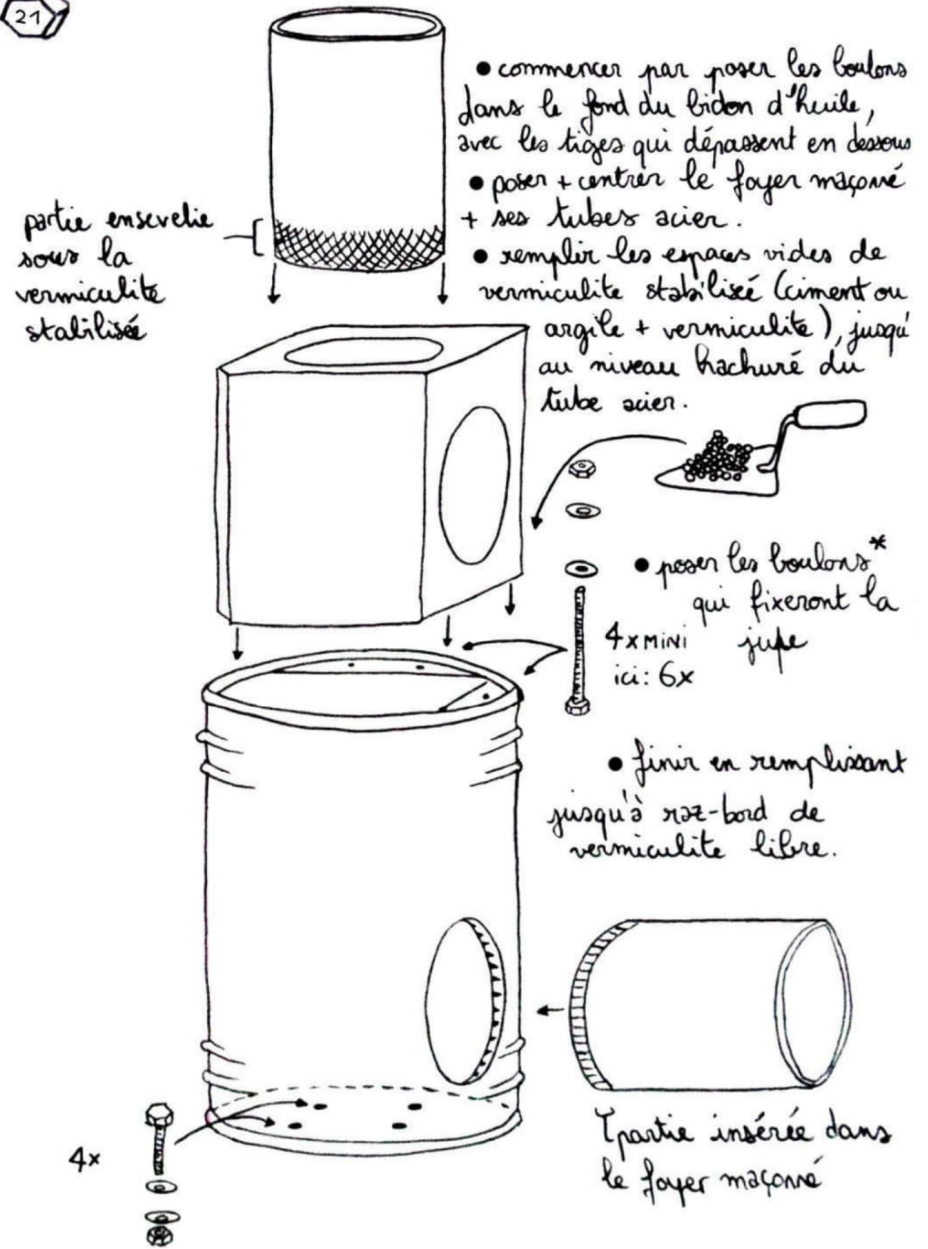 21
• commencer par poser les boulons
dans le fond du bidon d'huile,
avec les tiges qui dépassent en dessous
• poser + centrer le foyer maçonné
+ ses tubes acier.
• remplir les espaces vides de
vermiculite stabilisée (ciment ou
argile + vermiculite), jusqu'
au niveau hachuré du
tube acier.
partie ensevelie
sous la
vermiculite
stabilisée
• poser les boulons*
qui fixeront la
jupe
4x MINI
ici: 6x
• finir en remplissant
jusqu'à raz-bord de
vermiculite libre.
partie insérée dans
le foyer maçonné
4x